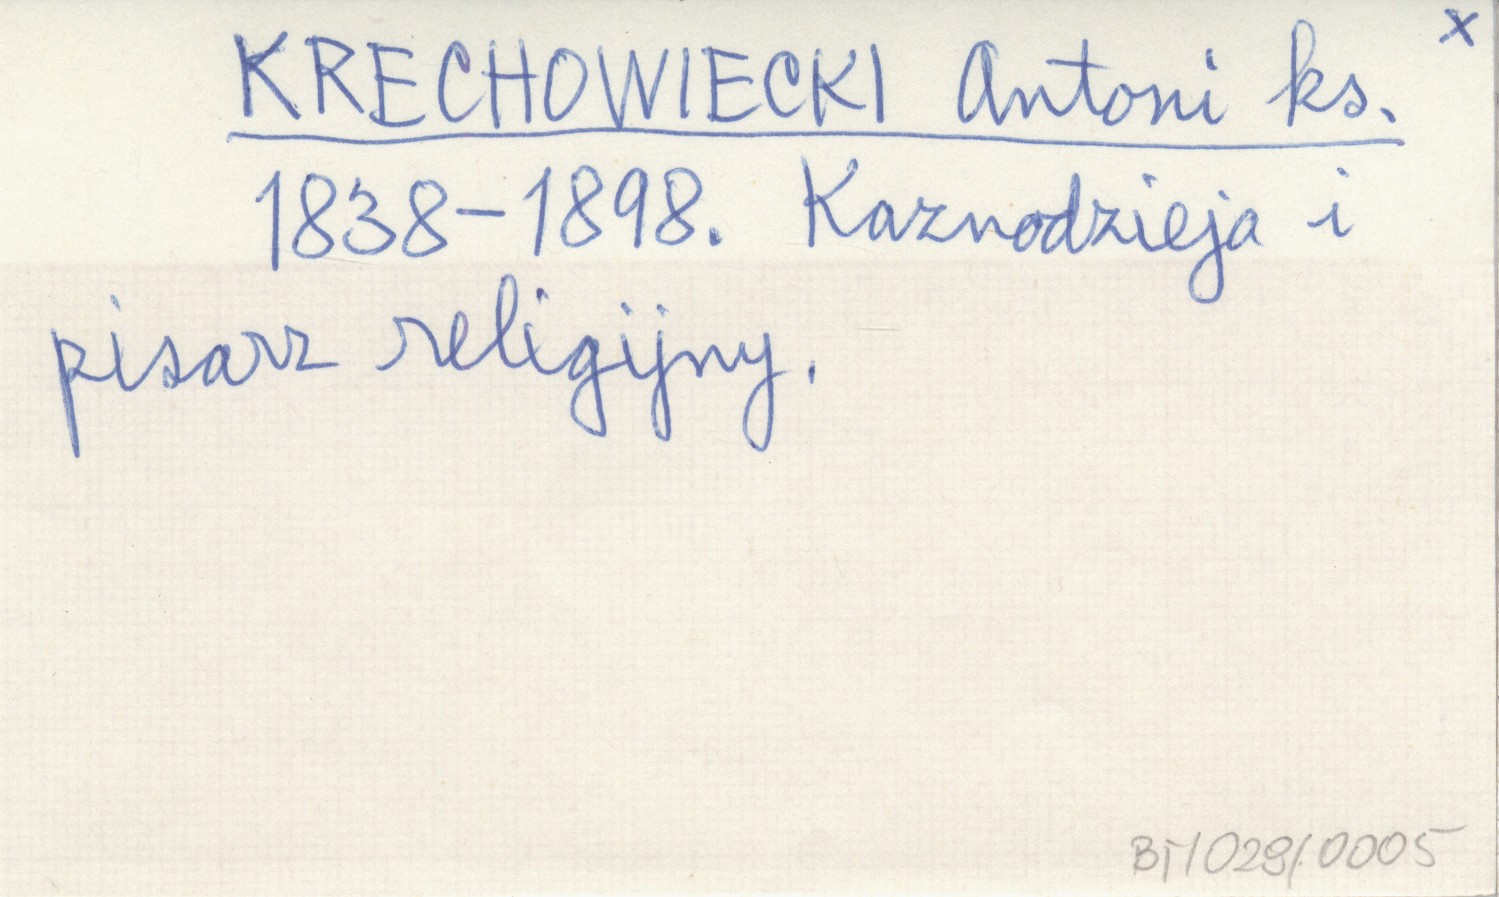 x
KRECHOWIECKI Antoni ks.
1838-1898. Kaznodzieja i
pisarz religijny.
BI/028/0005